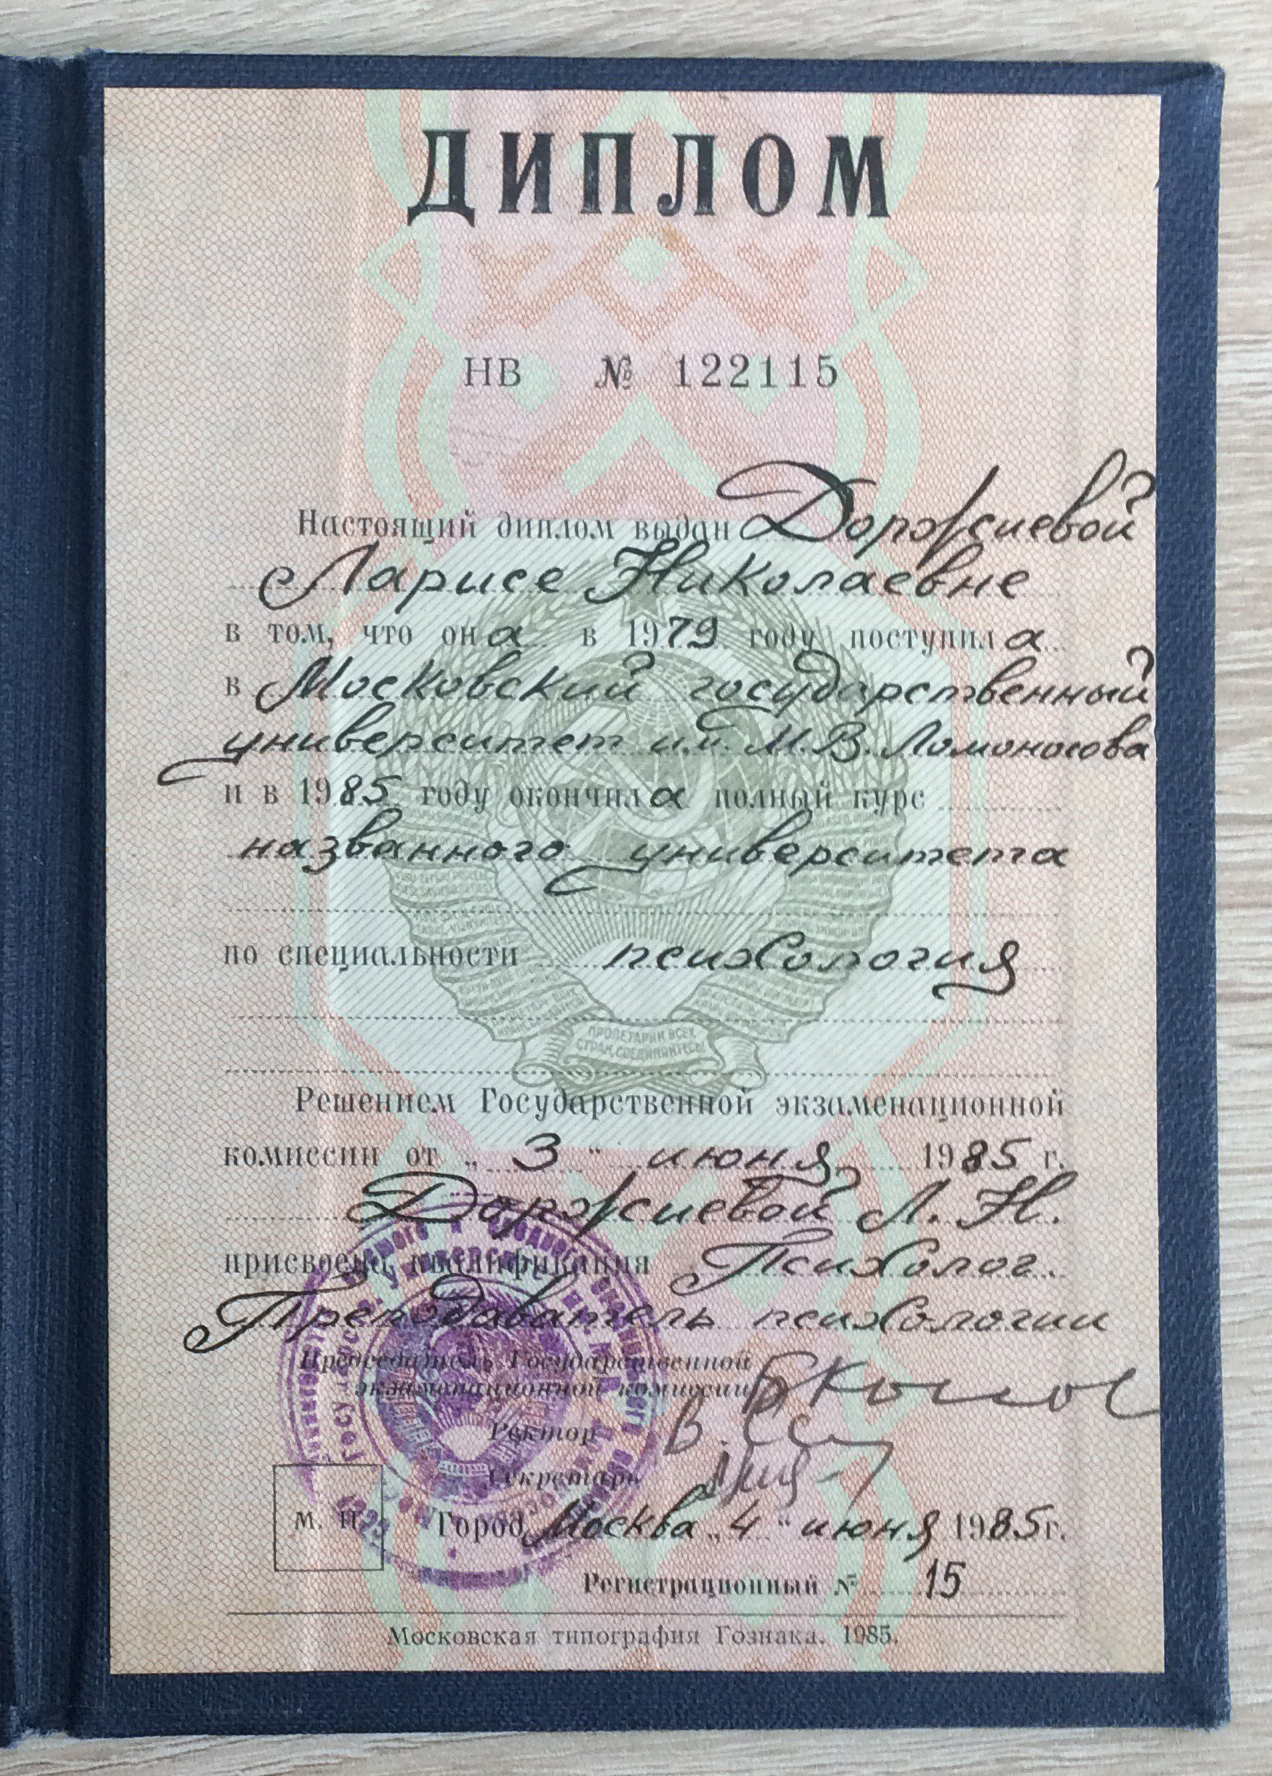 ДИПЛОМ
НВ № 122115
Настоящий диплом выдан Доржиевой
Ларисе Николаевне
в том, что она в 1979 году поступила
в Московский государственный
университет им. М.В. Ломоносова
и в 1985 году окончила полный курс
названного университета
по специальности психология
ПРОЛЕТАРИИ ВСЕХ
СТРАН, СОЕДИНЯЙТЕСЬ!
Решением Государственной экзаменационной
комиссии от „3“ июня 1985 г.
Доржиевой Л. Н.
присвоена квалификация Психолог.
Преподаватель психологии
Председатель Государственной
экзаменационной комиссии
Ректор
Секретарь
М. П. Город Москва „4“ июня 1985г.
Регистрационный № 15
Московская типография Гознака. 1985.